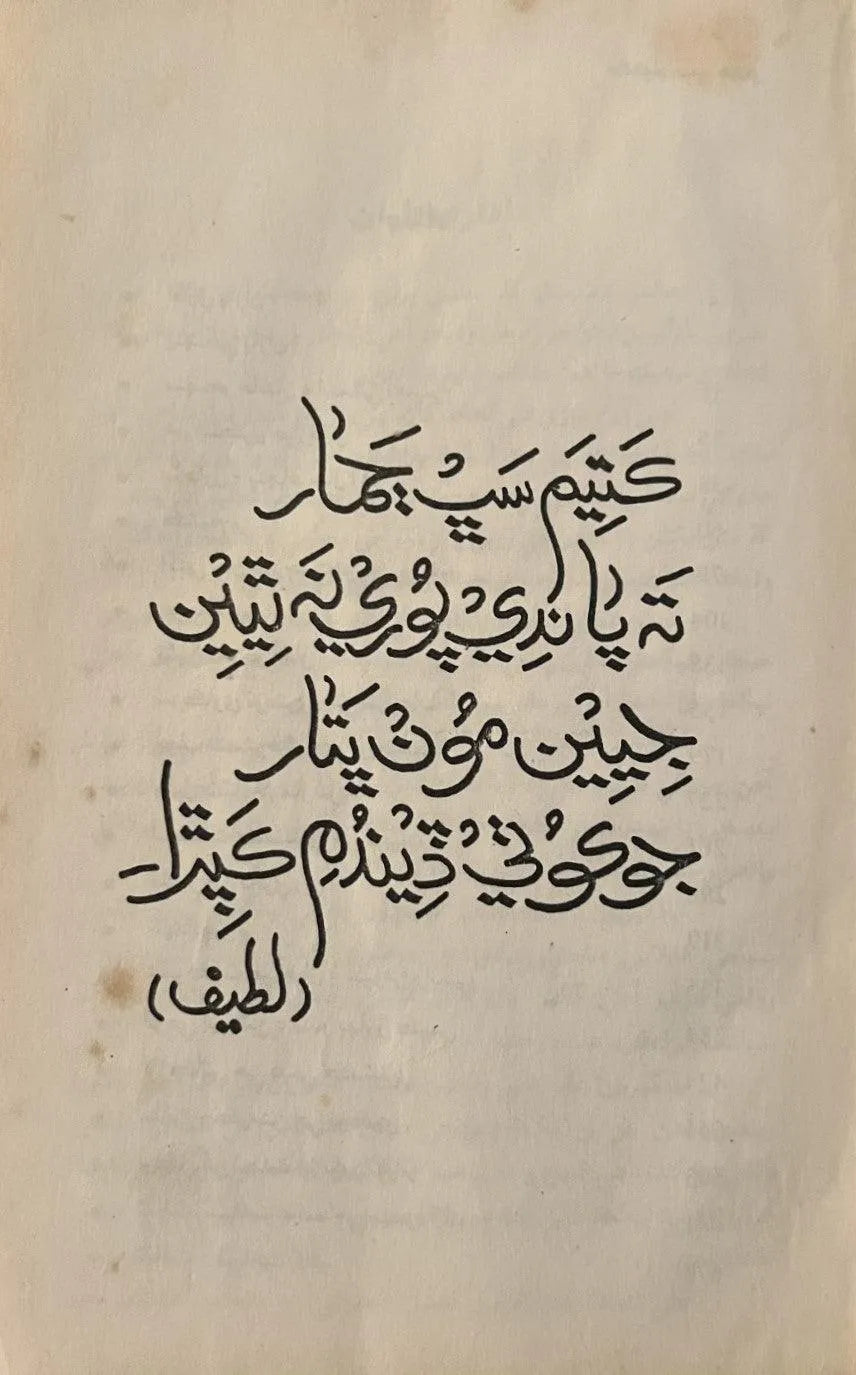 ڪَتِيَم سَڀْ ڄمار
تَہ پاندِيْ پُوْريْ نَہ ٿِيَيِنْ
جِيِيْن مُوْنْ پَٽار
جو ڪُوْنيْ ڏِيندُمِ ڪَپِڙا۔
(لطيف)